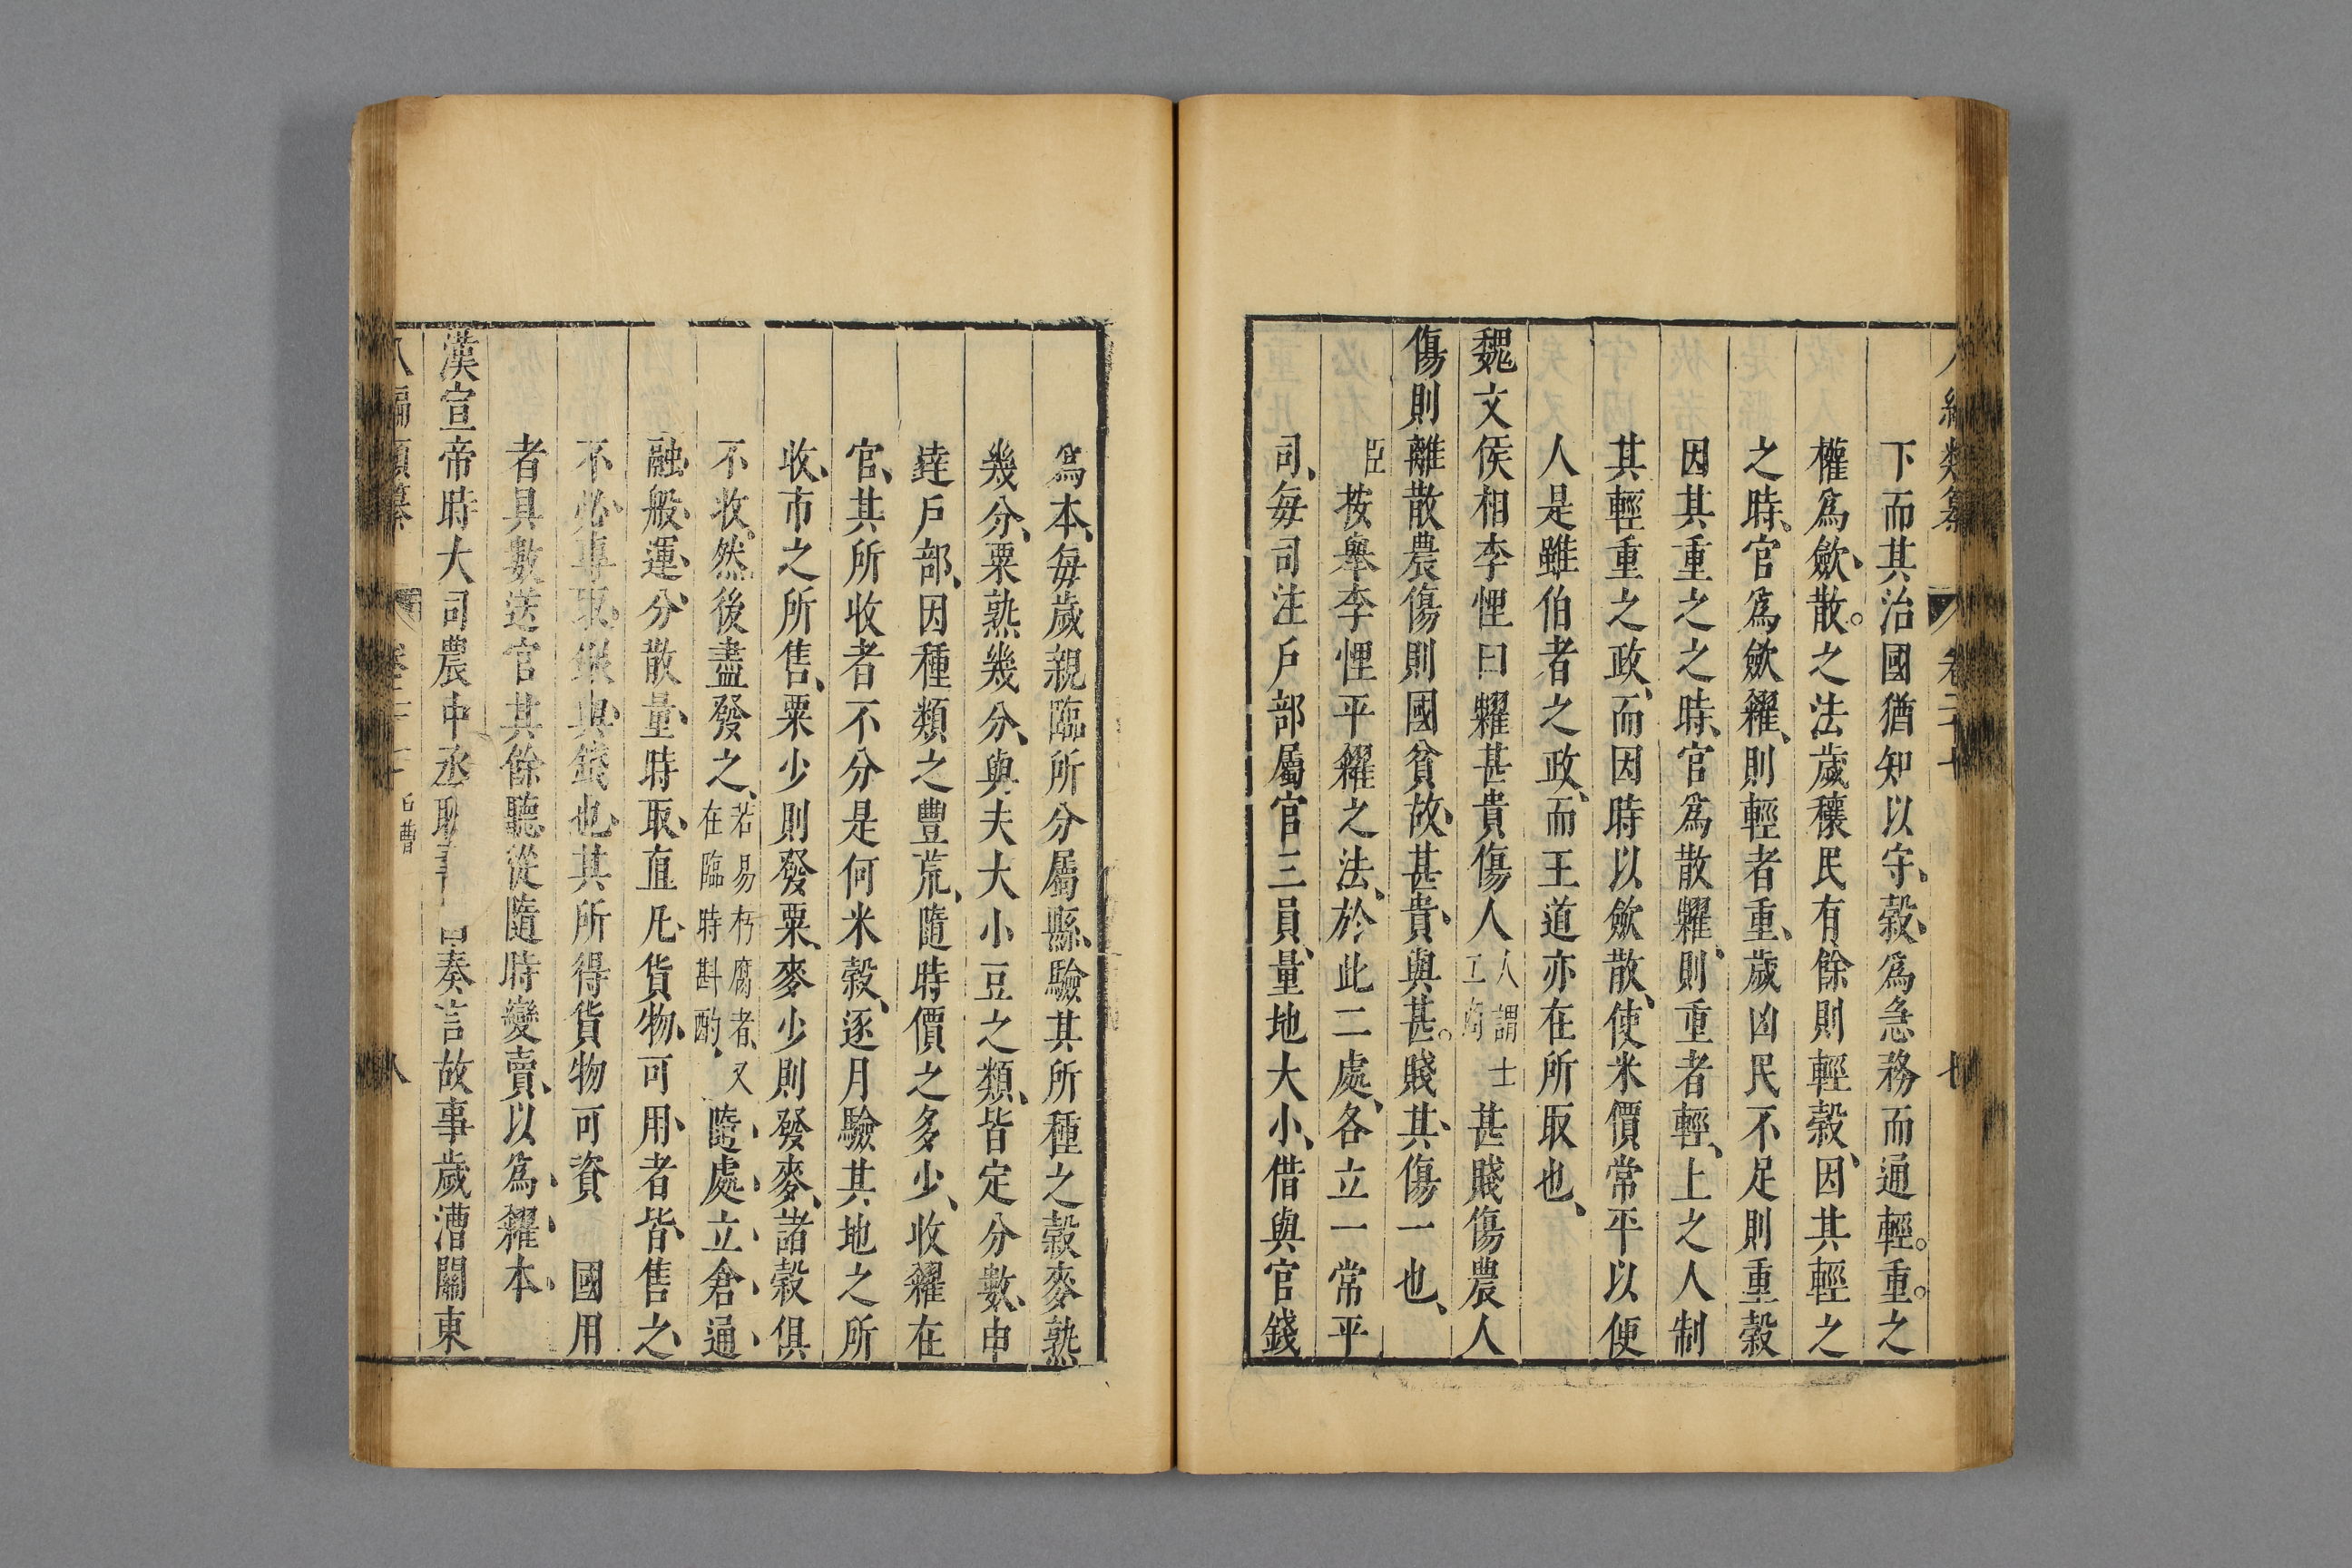 下而其治國猶知以守、穀、為急務而通輕。重。之
權為歛、散。之法歲穰民有餘則輕穀、因其輕之
之時、官為歛糴、則輕者重、歲凶民不足則重穀
因其重之之時、官為散糶、則重者輕、上之人制
其輕重之政、而因時以歛散、使米價常平以便
人是雖伯者之政、而王道亦在所取也、
魏文侯相李悝曰糴甚貴傷人人謂士工商甚賤傷農人
傷則離散農傷則國貧、故、甚、貴、與甚。賤、其、傷一也、
臣按舉李悝平糴之法、於此二處、各立一常平
司、每司注戶部屬官三員、量地大小、借與官錢
為本、每歲親臨所分屬縣、驗其所種之穀麥熟
幾分、粟熟幾分、與夫大小豆之類、皆定分數、申
達戶部、因種類之豐荒、隨時價之多少、收糴在
官、其所收者不分是何米穀、逐月驗其地之所
收、市之所售、粟少則發粟、麥少則發麥、諸穀俱
不收、然後盡發之、若易朽腐者、又在臨時斟酌、隨、處、立、倉、通、
融、般、運、分、散量、時取、直、凡、貨物、可用、者皆、售之、
不必、專取、銀、與、錢也、其所得貨物可資 國用
者具數送官其餘聽從隨時變賣、以為、糴、本、
漢宣帝時大司農中丞耿 奏言故事歲漕關東